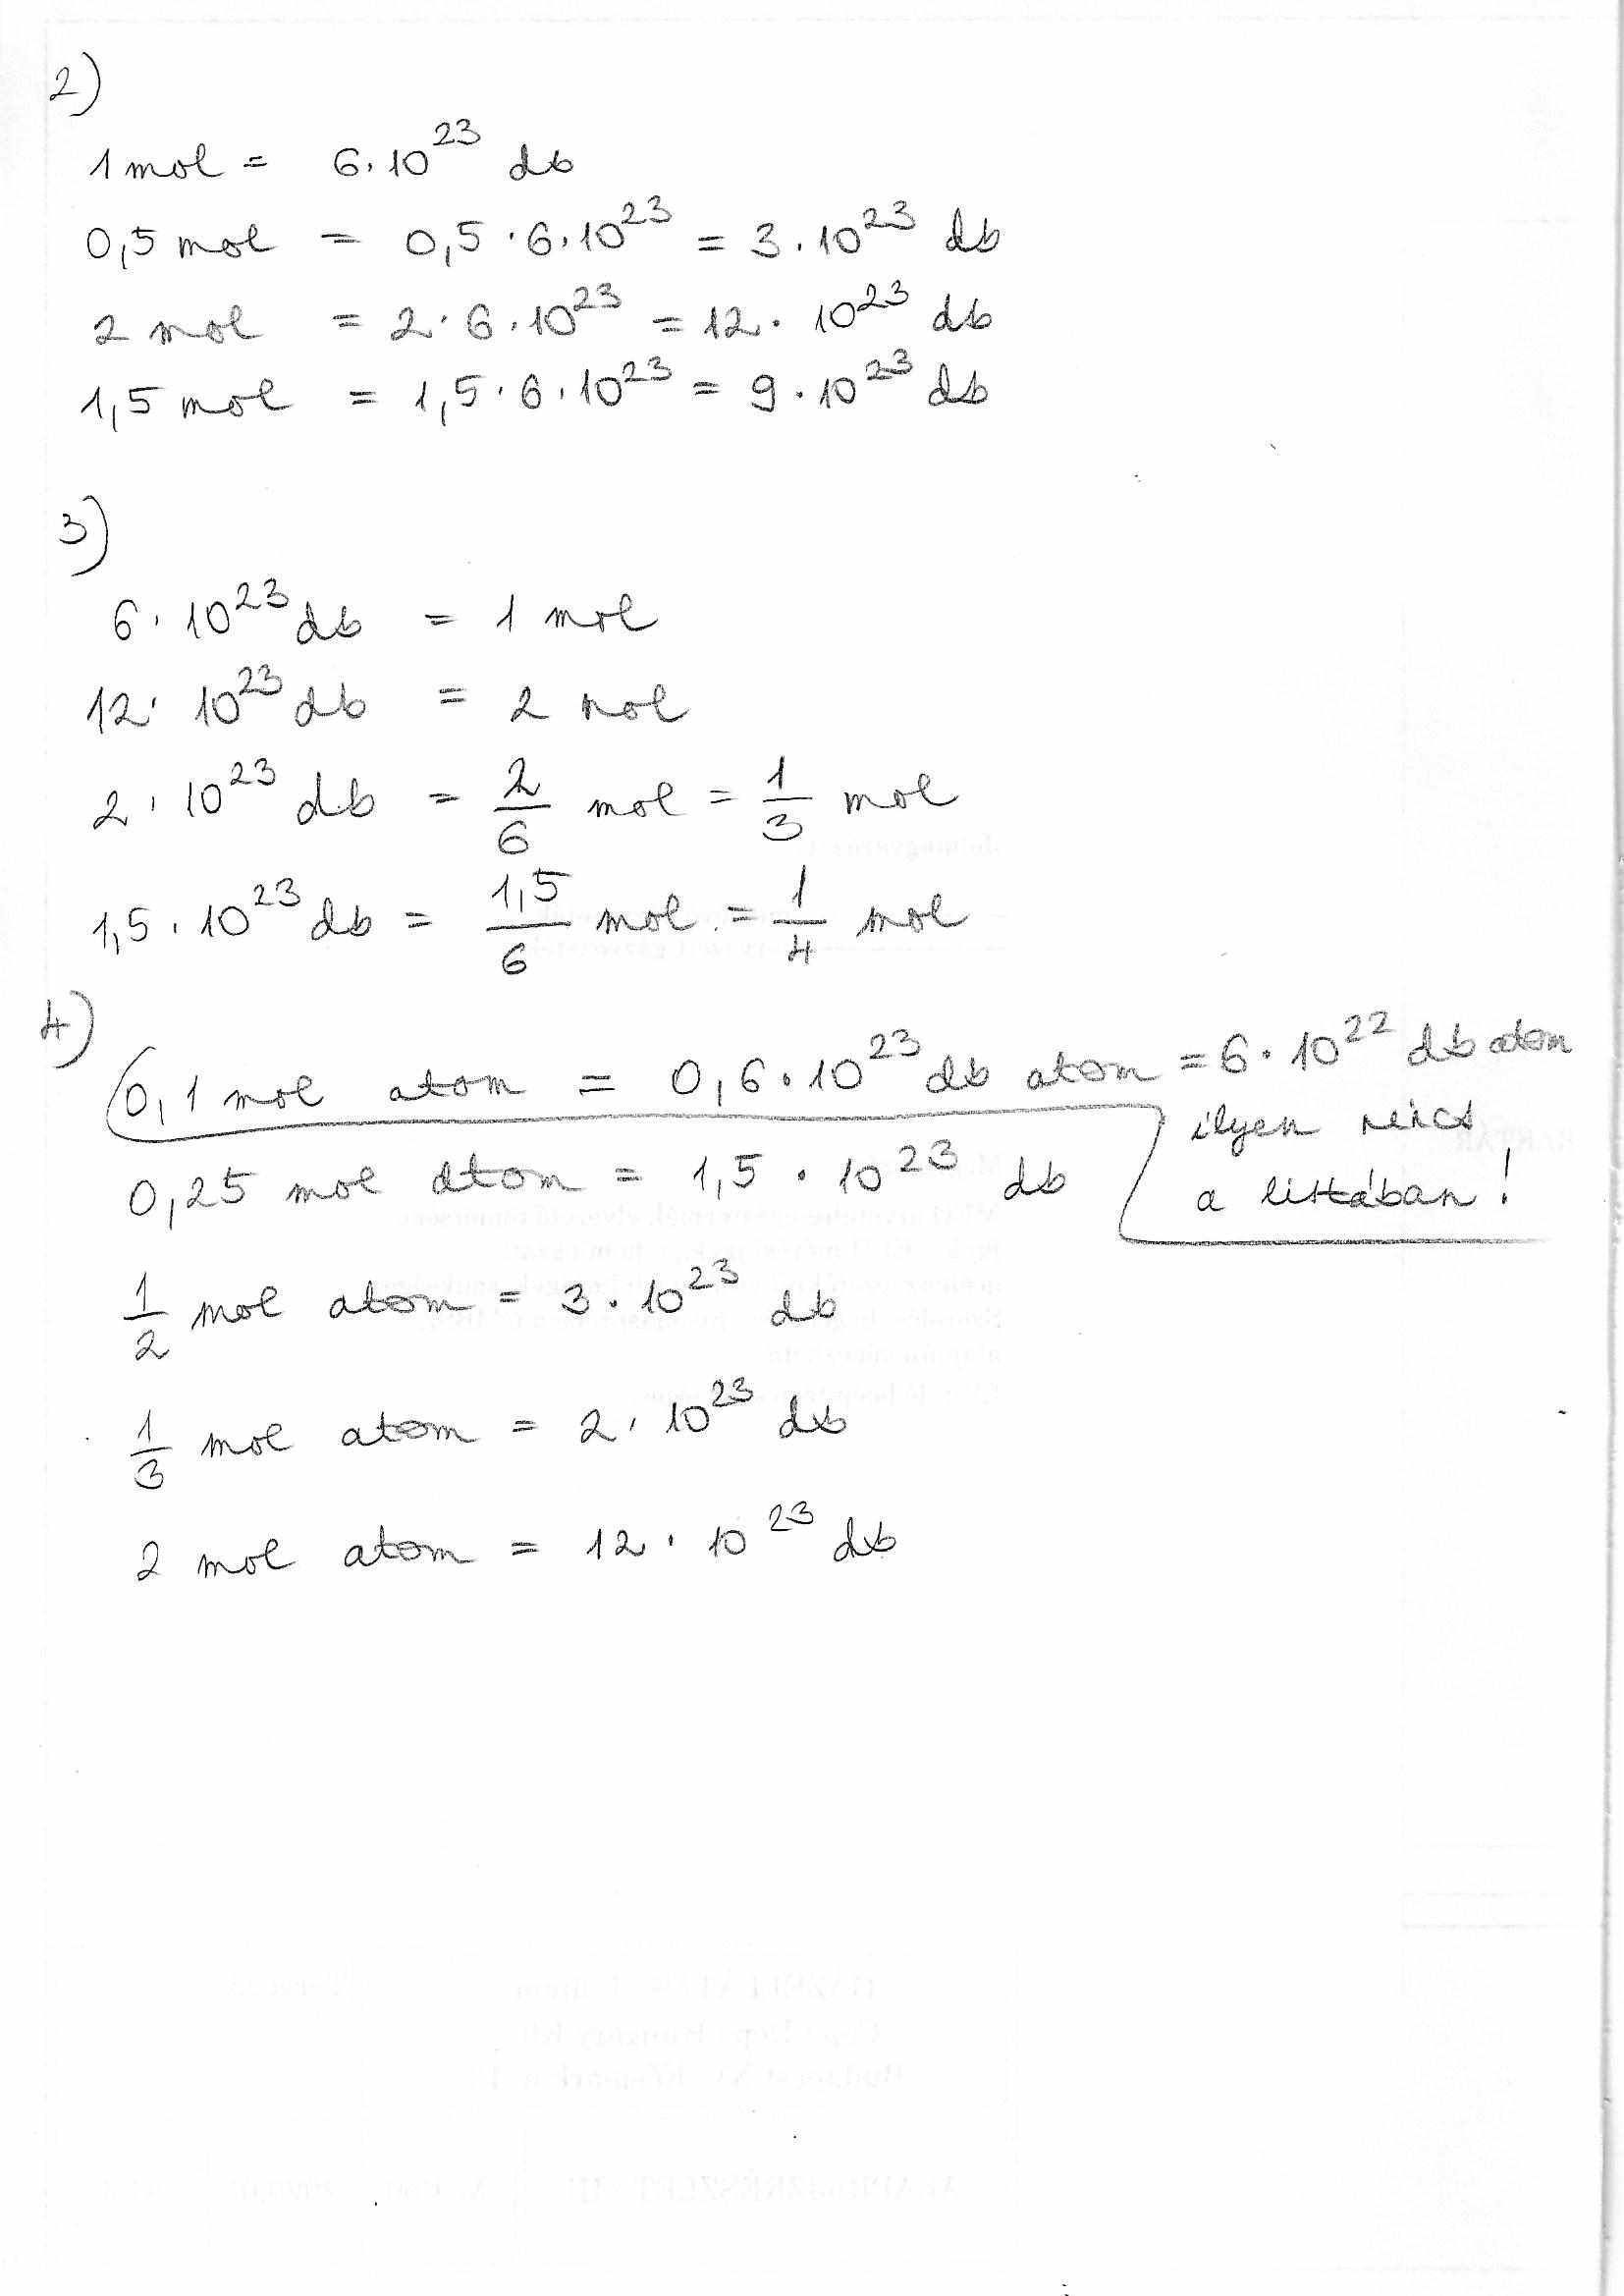 2)
1 mol = 6·10²³ db
0,5 mol = 0,5·6·10²³ = 3·10²³ db
2 mol = 2·6·10²³ = 12·10²³ db
1,5 mol = 1,5·6·10²³ = 9·10²³ db
3)
6·10²³ db = 1 mol
12·10²³ db = 2 mol
2·10²³ db = 2/6 mol = 1/3 mol
1,5·10²³ db = 1,5/6 mol = 1/4 mol
4)
0,1 mol atom = 0,6·10²³ db atom = 6·10²² db atom
ilyen nincs
a listában!
0,25 mol atom = 1,5·10²³ db
1/2 mol atom = 3·10²³ db
1/3 mol atom = 2·10²³ db
2 mol atom = 12·10²³ db